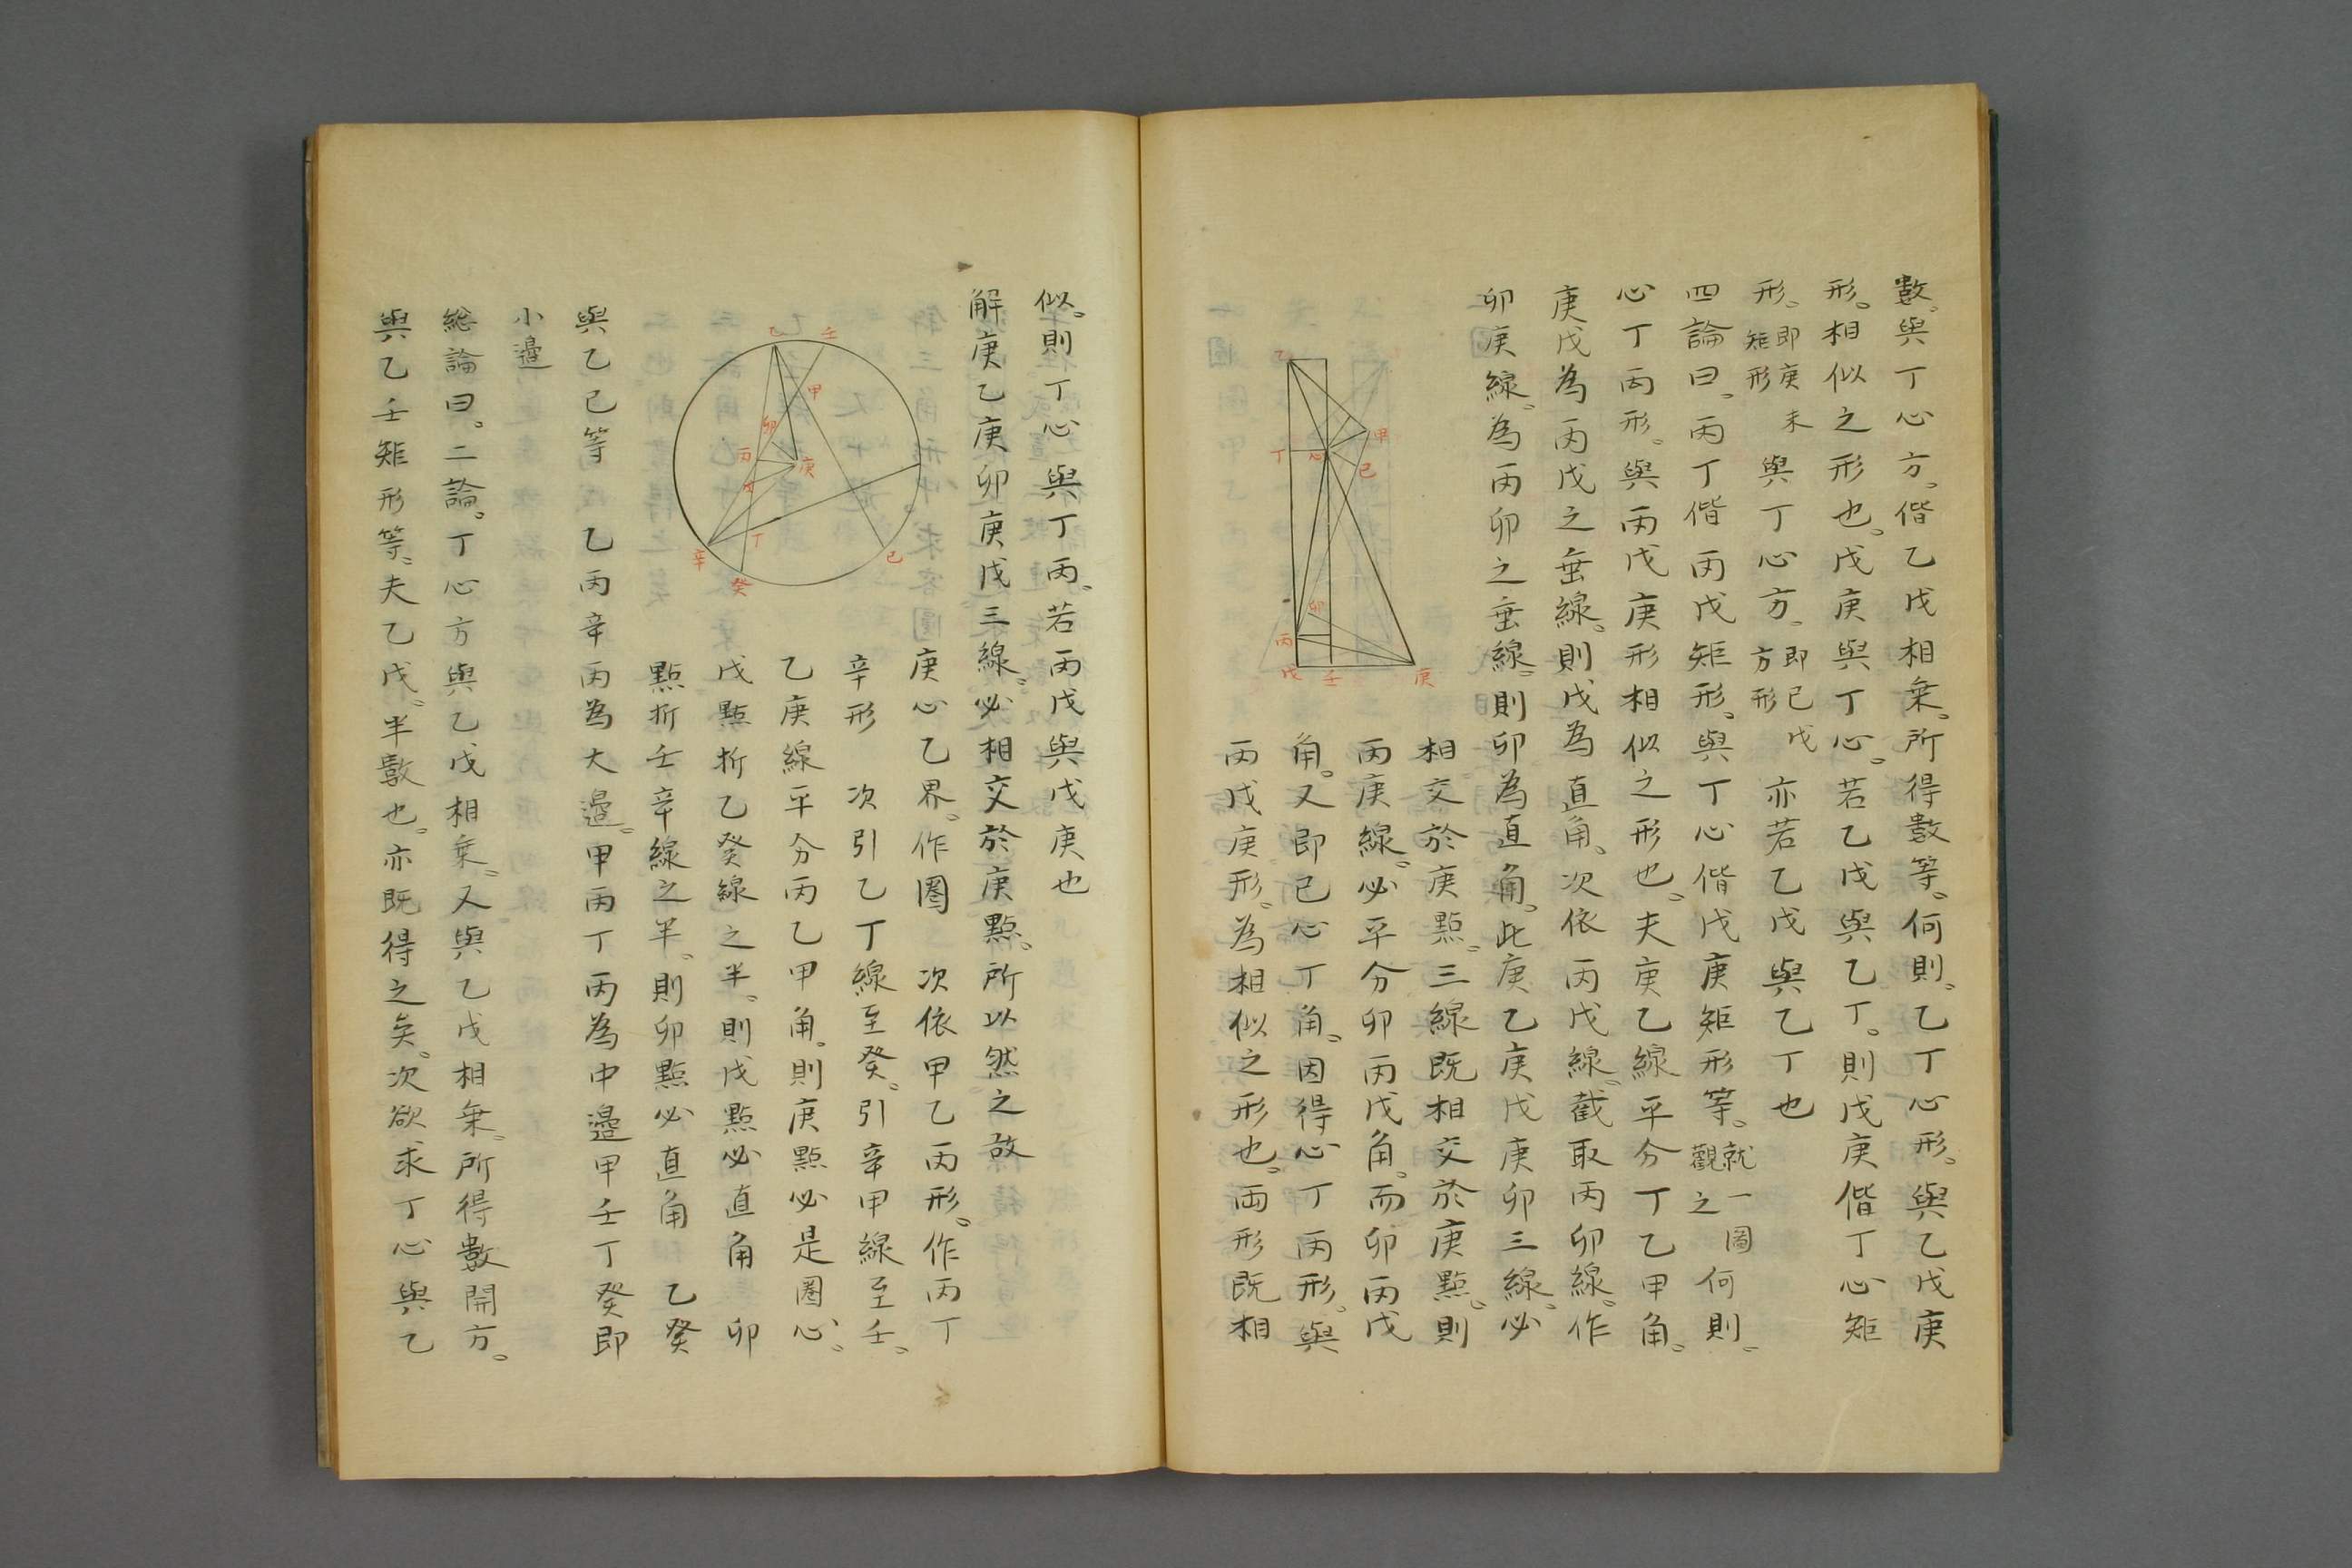 數。與丁心方。偕乙戊相乗。所得數等。何則。乙丁心形。與乙戊庚
形。相似之形也。戊庚與丁心。若乙戊與乙丁。則戊庚偕丁心矩
形。即庚未矩形與丁心方。即已戊方形亦若乙戊與乙丁也
四論曰。丙丁偕丙戊矩形。與丁心偕戊庚矩形等。就一圖觀之何則。
心丁丙形。與丙戊庚形相似之形也。夫庚乙線平分丁乙甲角。
庚戊為丙戊之垂線。則戊為直角。次依丙戊線。截取丙卯線。作
卯庚線。為丙卯之垂線。則卯為直角。此庚乙庚戊庚卯三線。必
相交於庚點。三線既相交於庚點。則
丙庚線。必平分卯丙戊角。而卯丙戊
角。又即已心丁角。因得心丁丙形。與
丙戊庚形。為相似之形也。兩形既相
乙
甲
丁
心
已
卯
丙
戊
壬
庚
似。則丁心與丁丙。若丙戊與戊庚也
解庚乙庚卯庚戊三線。必相交於庚點。所以然之故
庚心乙界。作圏 次依甲乙丙形。作丙丁
辛形 次引乙丁線至癸。引辛甲線至壬。
乙庚線平分丙乙甲角。則庚點必是圏心。
戊點折乙癸線之半。則戊點必直角 卯
點折壬辛線之半。則卯點必直角 乙癸
與乙已等 乙丙辛丙為大邉。甲丙丁丙為中邉甲壬丁癸即
小邉
乙
壬
甲
卯
丙
庚
戊
丁
辛
癸
已
総論曰。二論。丁心方與乙戊相乗。又與乙戊相乗。所得數開方。
與乙壬矩形等。夫乙戊。半數也。亦既得之矣。次欲求丁心與乙